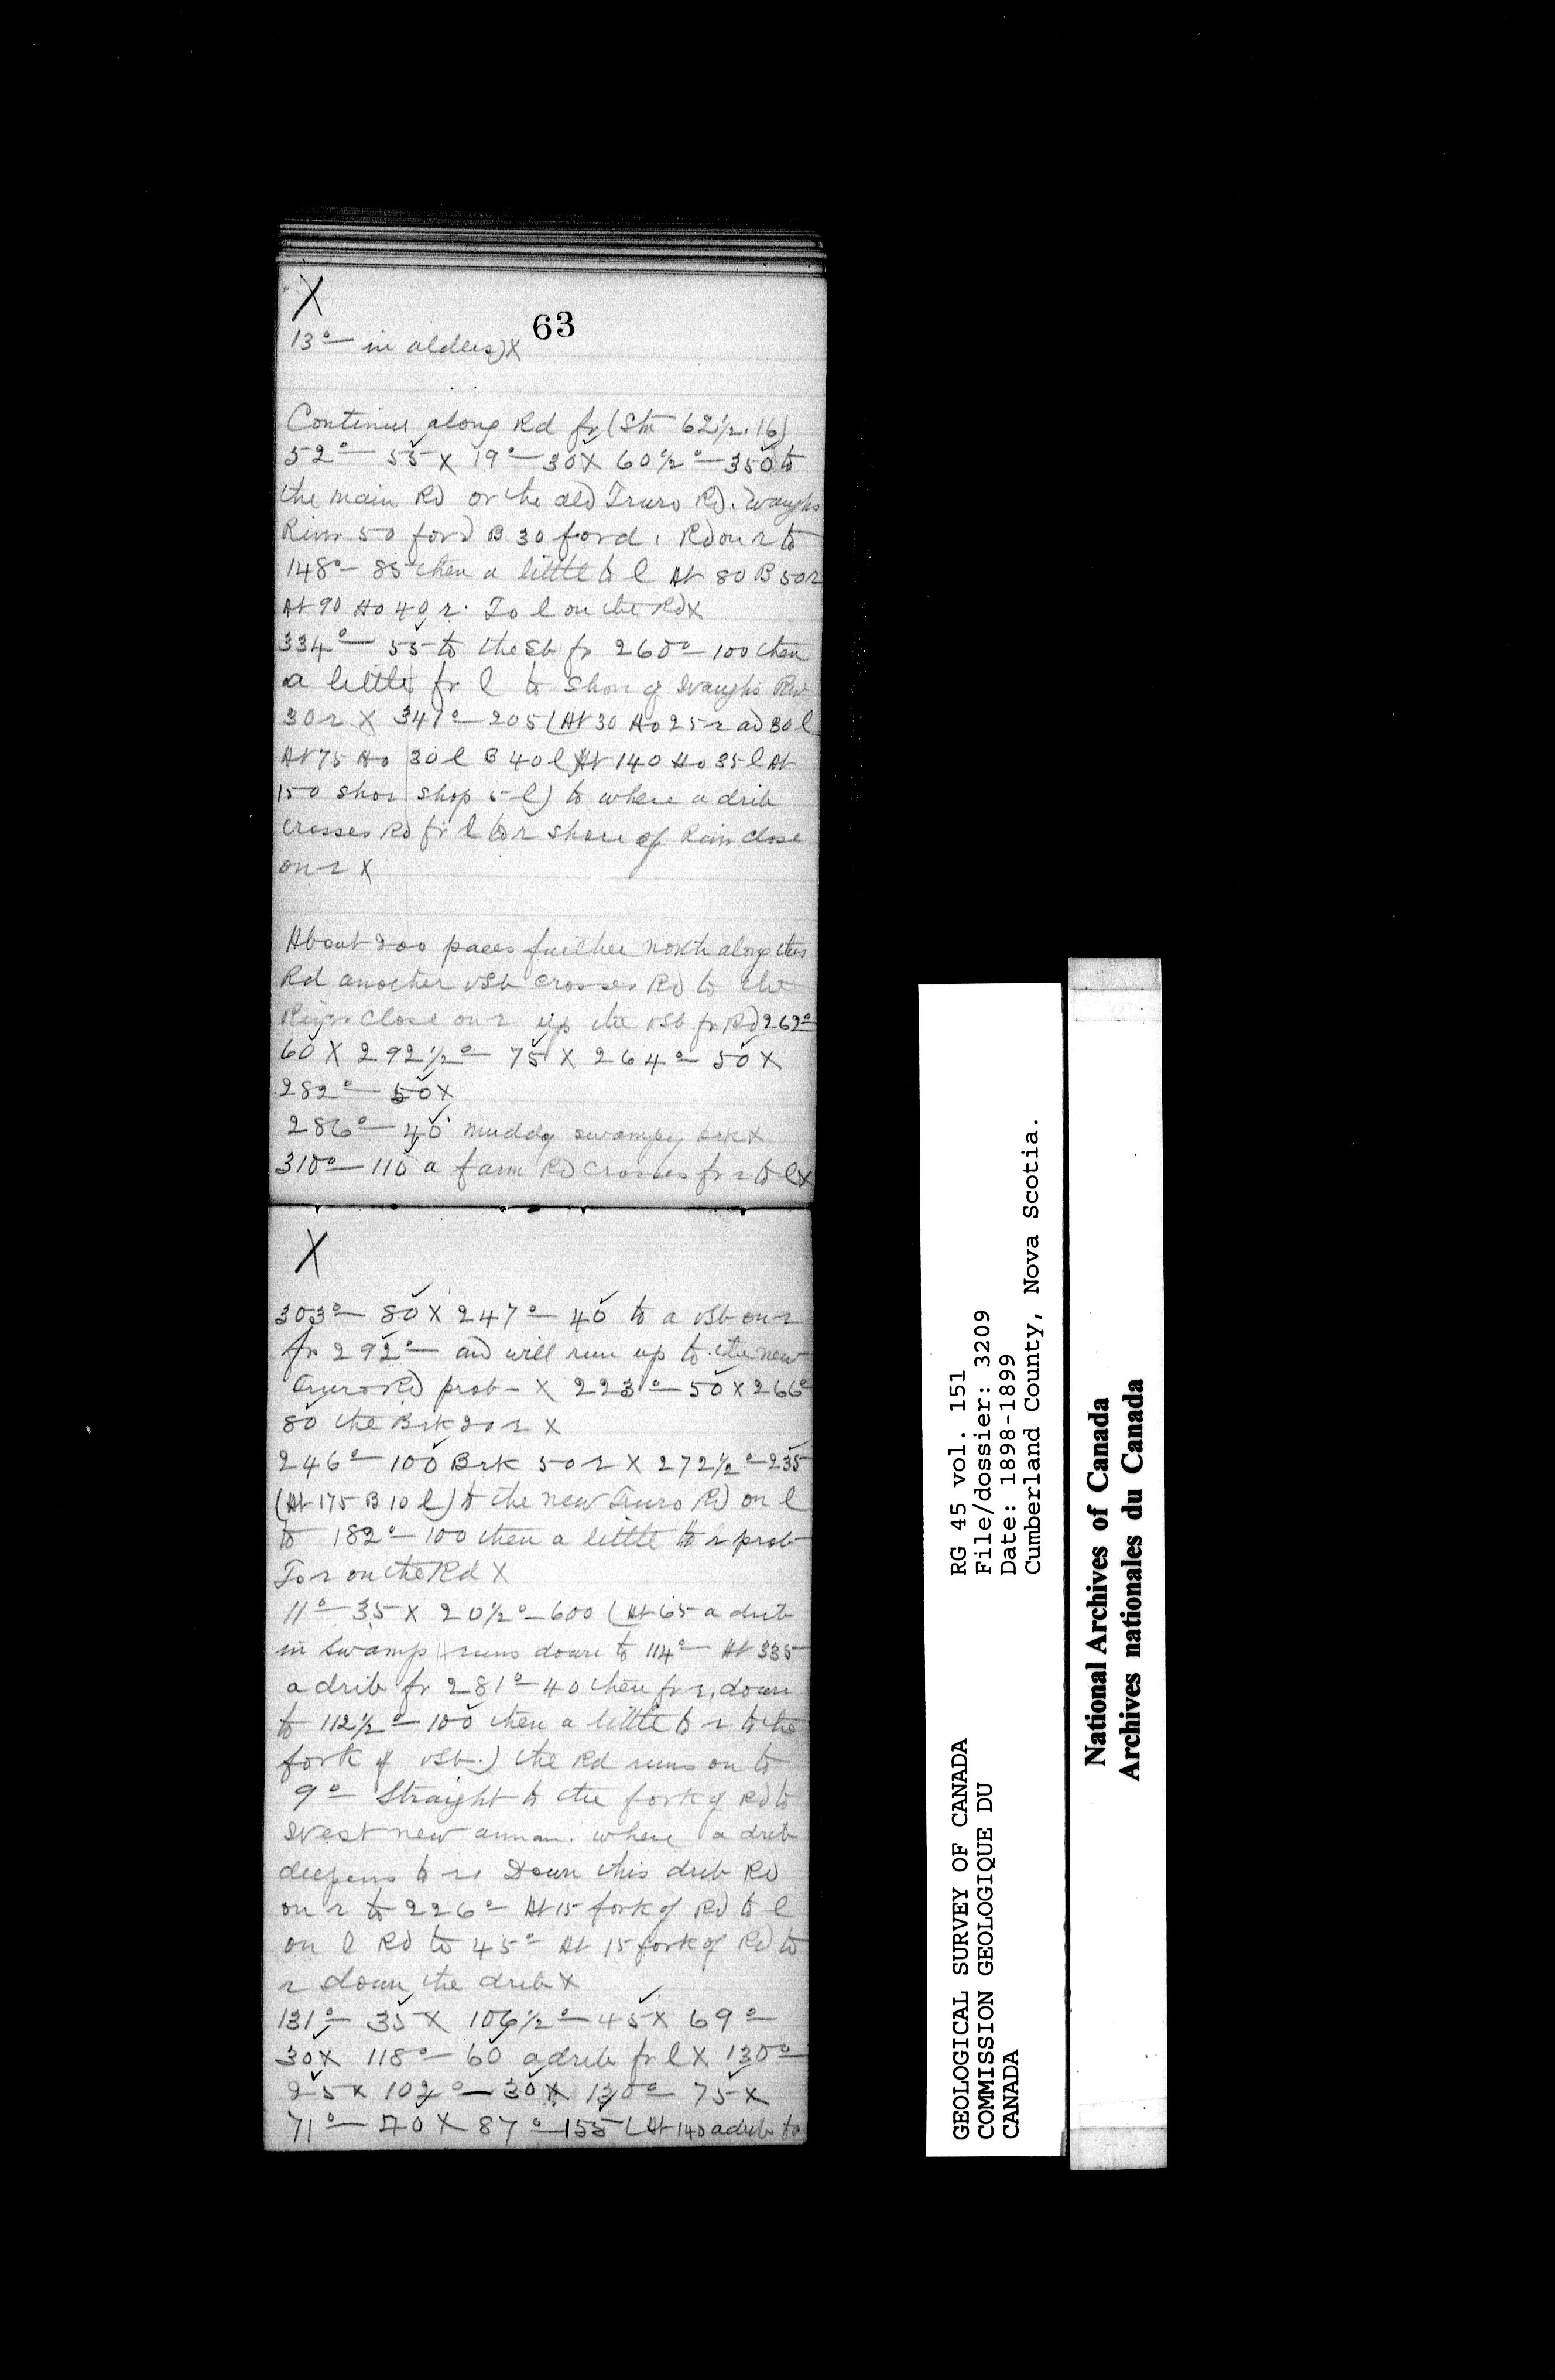 X
63
13°— in alders) X
Continue along Rd fr (Stn 62½.16)
52°— 55 X 19°— 30 X 60½°— 350 to
the main Rd or the old Truro Rd. Waughs
River 50 ford B 30 ford. Rd on r to
148°— 85 then a little to l At 80 B 50 r
At 90 Ho 40 r. To l on the Rd X
334°— 55 to the Sb fr 260°— 100 then
a little fr l to Shore of Waughs River
30 r X 347°— 205 (At 30 Ho 25 r and 30 l
At 75 Ho 30 l B 40 l At 140 Ho 35 l At
150 shoe shop 5 l) to where a drib
crosses Rd fr l to r shore of River close
on r X
About 200 paces further north along this
Rd another vSb crosses Rd to the
River close on r up the vSb fr Rd 262°—
60 X 292½°— 75 X 264°— 50 X
282°— 50 X
286°— 40 muddy swampy brk X
310°— 110 a farm Rd crosses fr r to l X
X
303°— 80 X 247°— 40 to a vSb on r
fr 292°— and will run up to the new
Truro Rd prob— X 223°— 50 X 266°—
80 the Brk 20 r X
246°— 100 Brk 50 r X 272½°— 235
(At 175 B 10 l) to the new Truro Rd on l
to 182°— 100 then a little to r prob—
To r on the Rd X
11°— 35 X 20½°— 600 (At 65 a drib
in swamp runs down to 114°— At 335
a drib fr 281°— 40 then fr r, down
to 112½°— 100 then a little to r to the
fork of vSb.) the Rd runs on to
9°— Straight to the fork of Rd to
West new annan. where a drib
deepens to r. Down this drib Rd
on r to 226°— At 15 fork of Rd to l
on l Rd to 45°— At 15 fork of Rd to
r down the drib X
131°— 35 X 106½°— 45 X 69°—
30 X 118°— 60 a drib fr l X 130°—
25 X 102°— 30 X 130°— 75 X
71°— 70 X 87°— 155 (At 140 a drib to
GEOLOGICAL SURVEY OF CANADA
COMMISSION GEOLOGIQUE DU
CANADA
RG 45 vol. 151
File/dossier: 3209
Date: 1898-1899
Cumberland County, Nova Scotia.
National Archives of Canada
Archives nationales du Canada